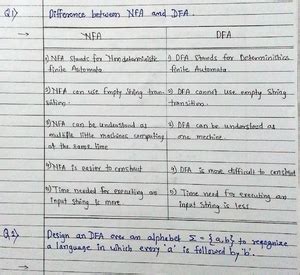 Q1) Difference between NFA and DFA.
→ NFA DFA
1) NFA stands for Non deterministic finite Automata
1) DFA stands for Deterministic finite Automata
2) NFA can use Empty String transition.
2) DFA cannot use empty String transition.
3) NFA can be understood as multiple little machines computing at the same time
3) DFA can be understood as one machine.
4) NFA is easier to construct
4) DFA is more difficult to construct
5) Time needed for executing an input string is more.
5) Time need for executing an input string is less.
Q2) Design an DFA over an alphabet Σ = {a,b} to recognize
a language in which every 'a' is followed by 'b'.
→